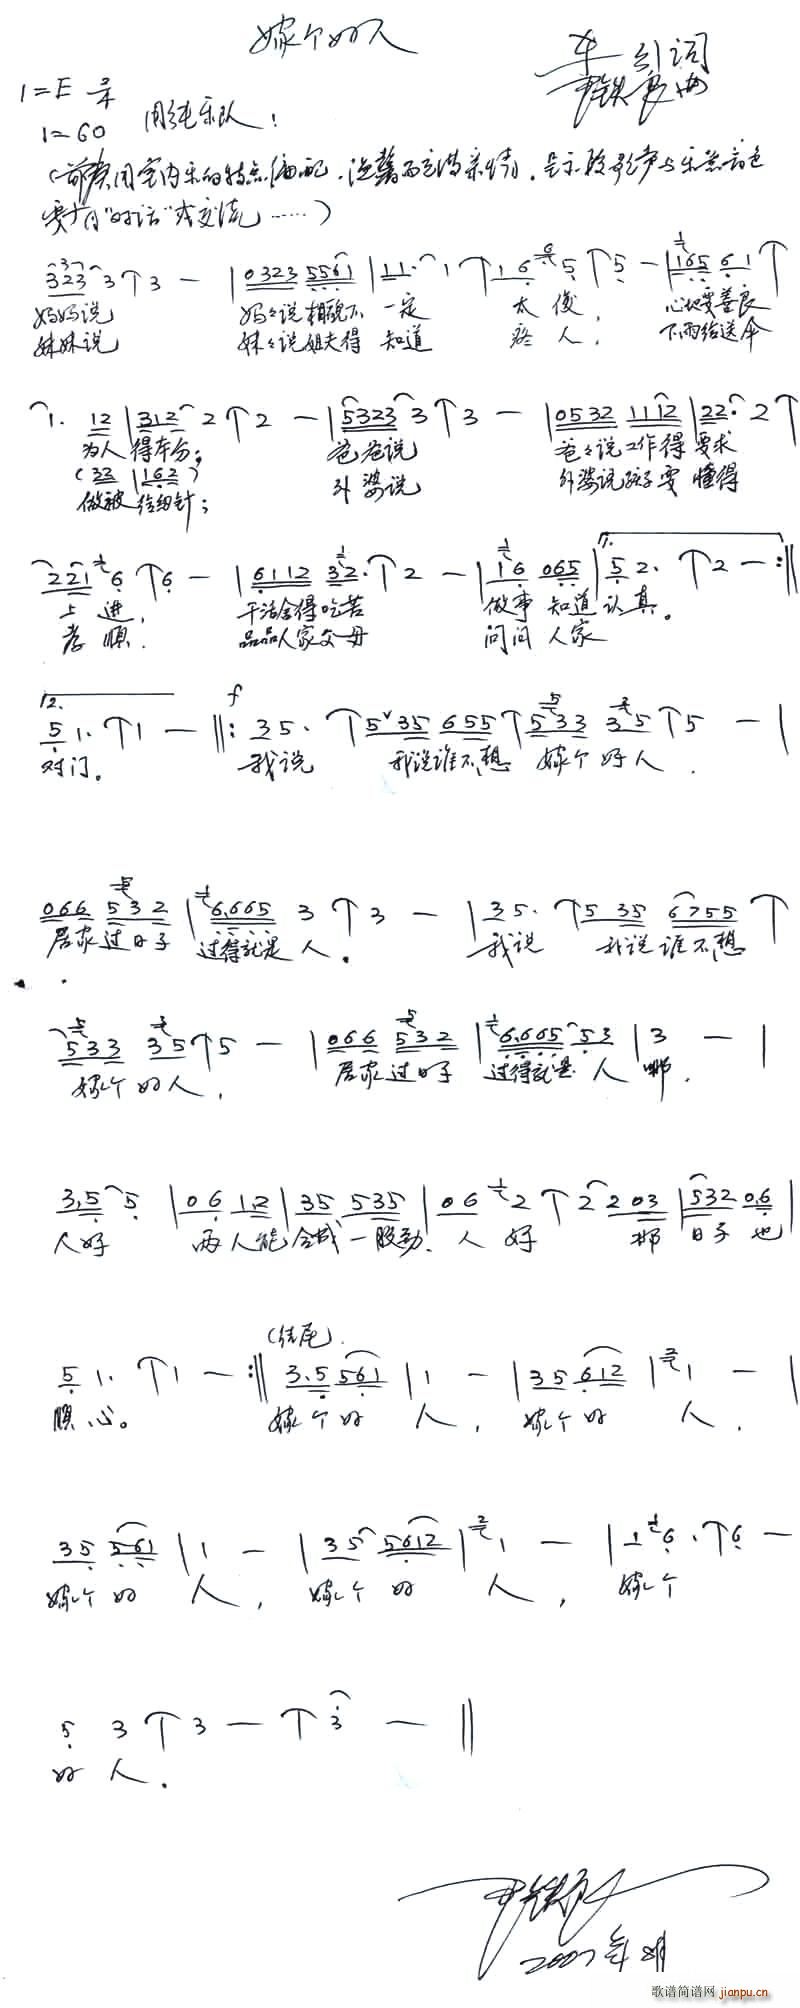 嫁个好人
车 引词
尹铁良曲
1=E 2/4
1=60 用纯乐队!
3 2 3 3 3 — | 0323 5561 | 11· 1 1 6 5 5 — | 165 6 1
妈妈说 妈々说相貌不 一定 太 俊, 心地要善良
妹妹说 妹々说姐夫得 知道 疼 人, 下雨给送伞
1· 12 | 312 2 2 — | 5323 3 3 — | 0532 1112 | 22· 2
为人 得本分; 爸爸说 爸々说工作得 要求
(33 | 162)
做被 给纫针; 外婆说 外婆说孩子要 懂得
221 6 6 — | 6112 32· 2 — | 16 065 | 1. 5 2· 2 — :‖
上 进, 干活舍得吃苦 做事 知道 认真。
孝 顺. 品品人家父母 问问 人家
2.
5 1· 1 — ‖: f 35· 5 35 655 533 35 5 — |
对门。 我说 我说谁不想 嫁个好人.
066 532 | 6.665 3 3 — | 35· 5 35 6755
居家过日子 过得就是 人. 我说 我说谁不想
533 35 5 — | 066 532 | 6.665 53 | 3 — |
嫁个好人, 居家过日子 过得就是 人 哪.
3.5 5 | 06 1.2 | 35 535 | 06 2 2 2 03 | 532 0.6 |
人好 两人能 合成一股劲. 人 好 那 日子 也
(结尾)
5 1· 1 — :‖ 3.5 561 | 1 — | 35 612 | 1 — |
顺心。 嫁个好 人, 嫁个好 人.
35 561 | 1 — | 35 5612 | 1 — | 1 6· 6 —
嫁个好 人, 嫁个好 人, 嫁个
5 3 3 — 3 — ‖
好 人.
尹铁良
2007年8月
歌谱简谱网 jianpu.cn